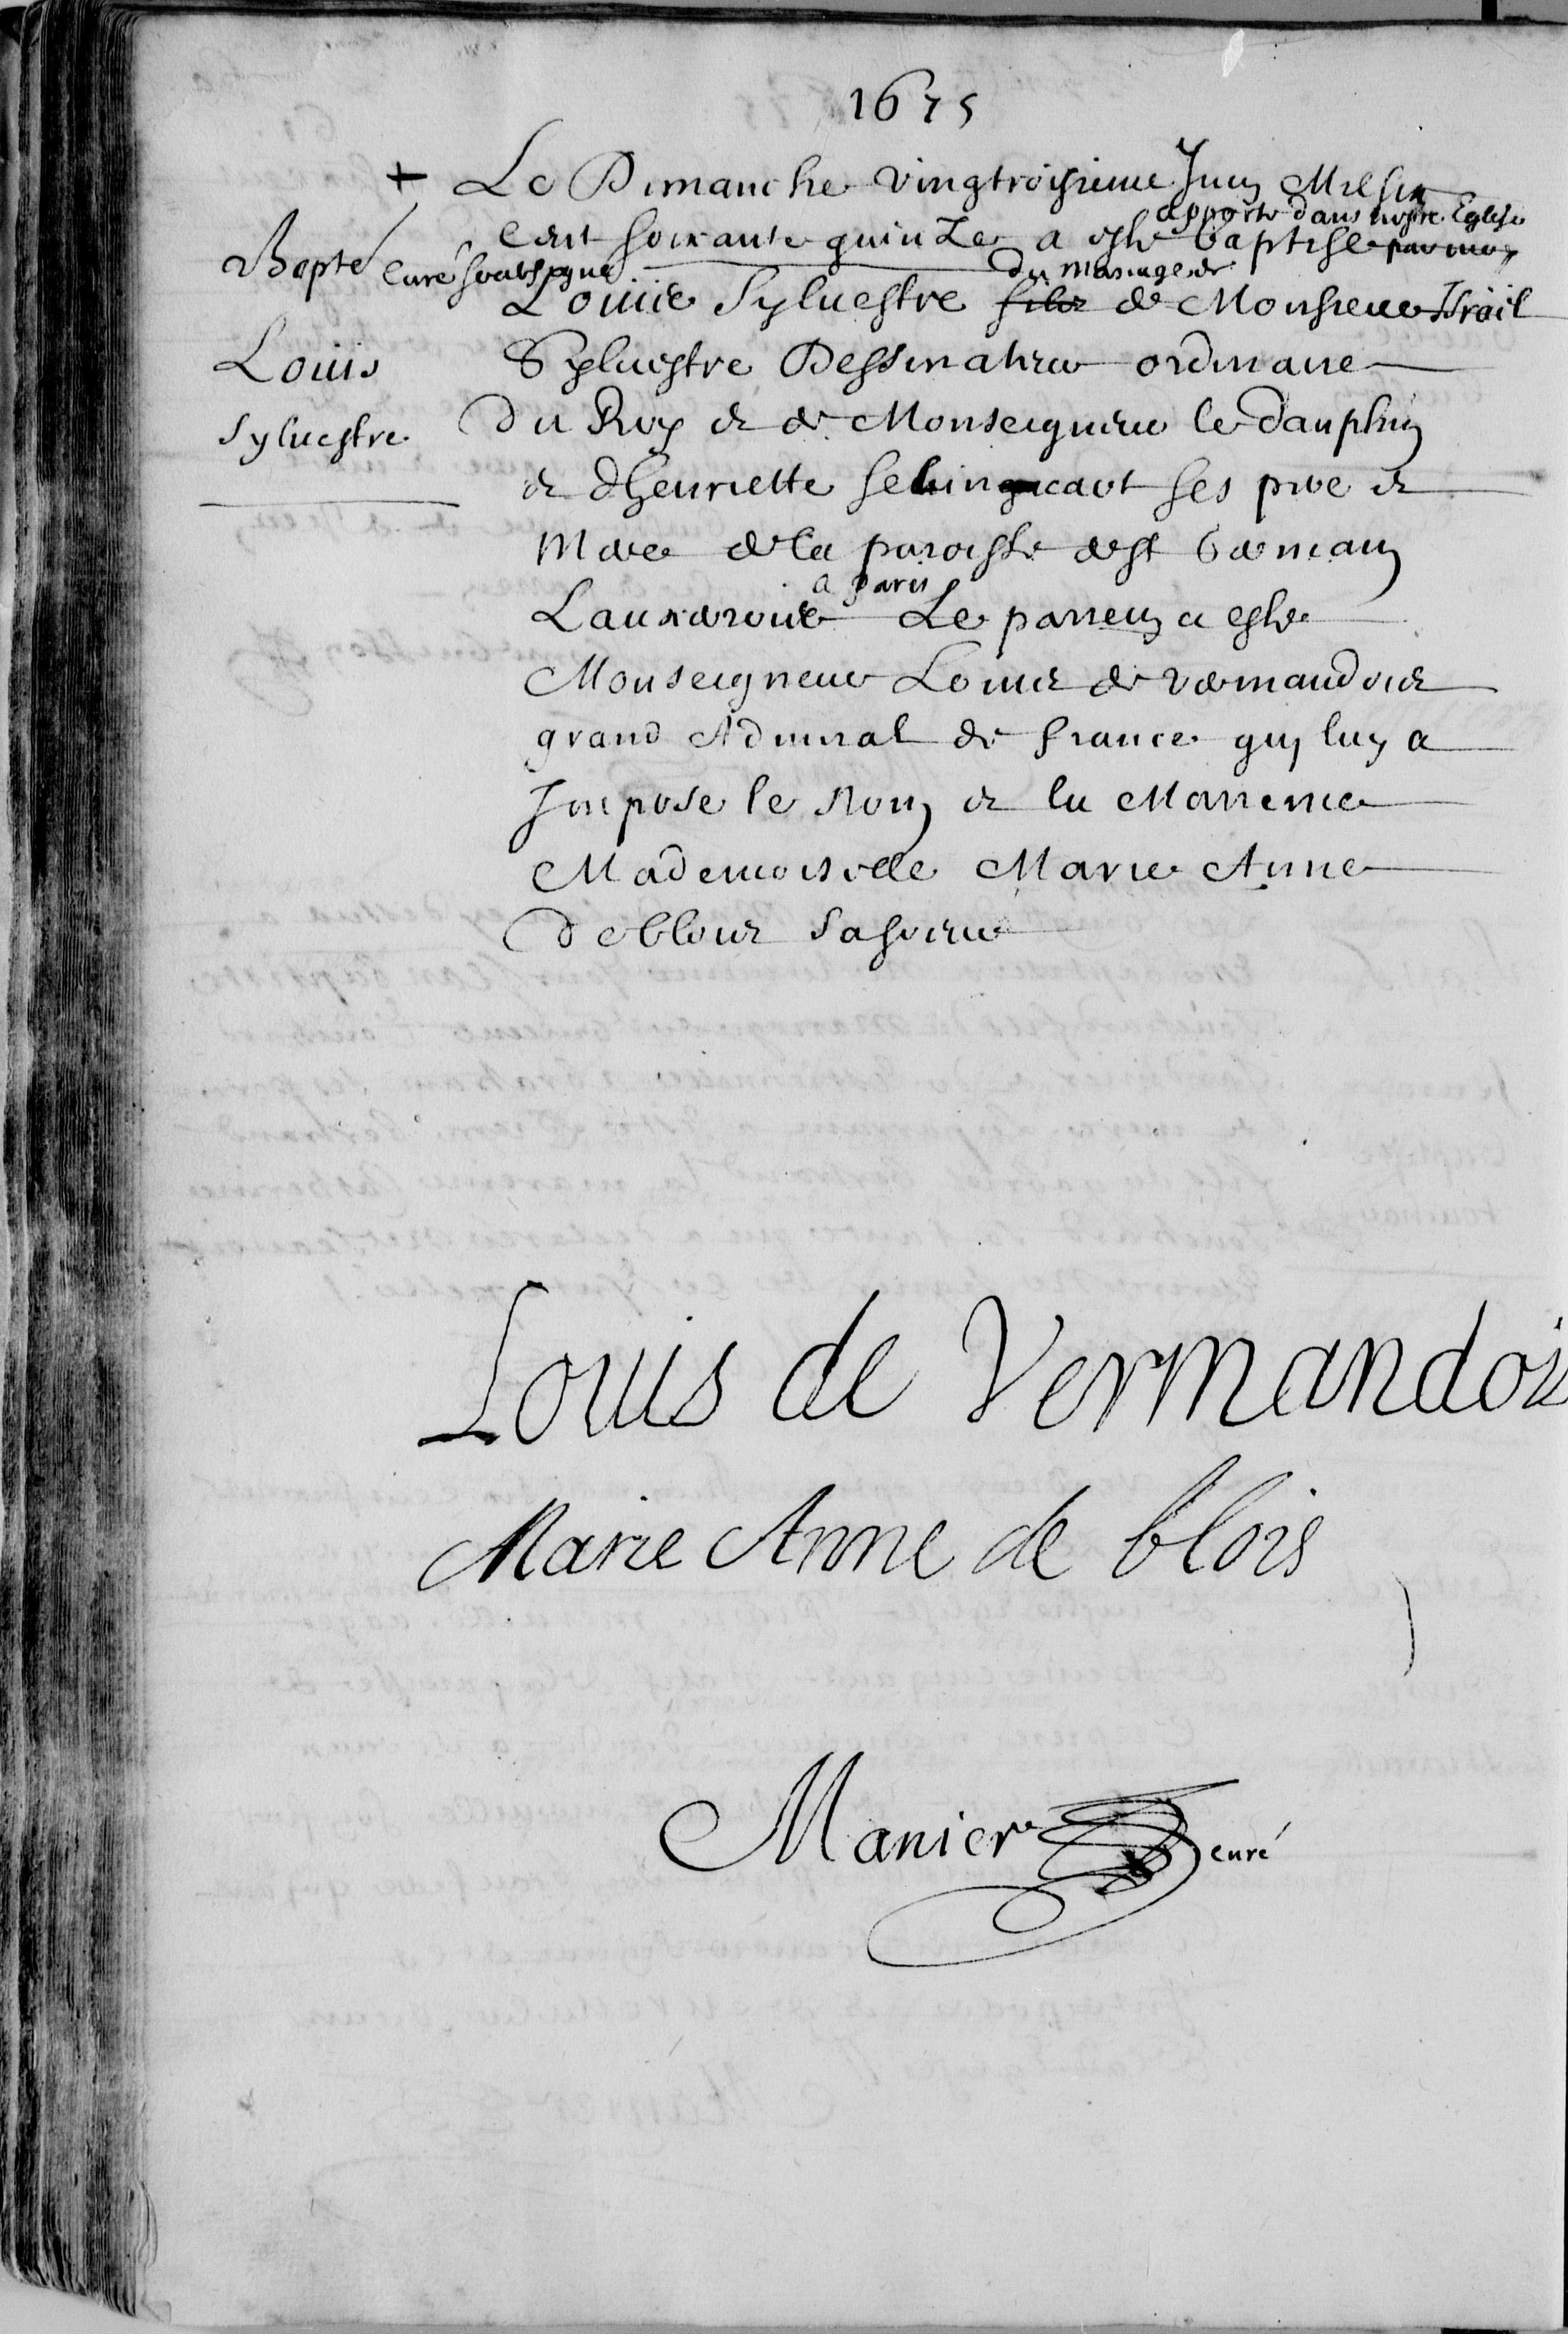 1675
+ Le Dimanche vingtroisieme Juin Mil six
apporte dans nostre Eglise
cent soixante quinze a esté baptisé par moy
Bapté
curé soubsigné
du Mariage de
Louis Sylvestre filz de Monsieur Israil
Louis
Sylvestre
Sylvestre Dessinateur ordinaire
du Roy et de Monseigneur le dauphin
et dhenriette ses pere et
Mere de la paroisse de st Germain
a paris
Lauxerois Le parrein a esté
Monseigneur Louis de vermandois
grand Admiral de france quy luy a
Impose le Nom et la Marreine
Mademoiselle Marie Anne
de blois sa soeur
Louis de Vermandois
Marie Anne de blois
Manier curé